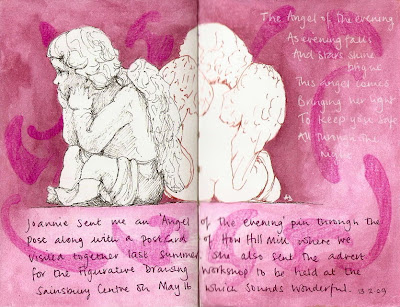 The Angel of the evening
As evening falls
And stars shine
bright
This angel comes
Bringing her light
To keep you safe
All through the
night
Joannie sent me an 'Angel of the evening' pin through the
post along with a postcard of How Hill Mill where we
visited together last summer. She also sent the advert
for the Figurative Drawing Workshop to be held at the
Sainsbury Centre on May 16 which sounds wonderful. 13.2.09